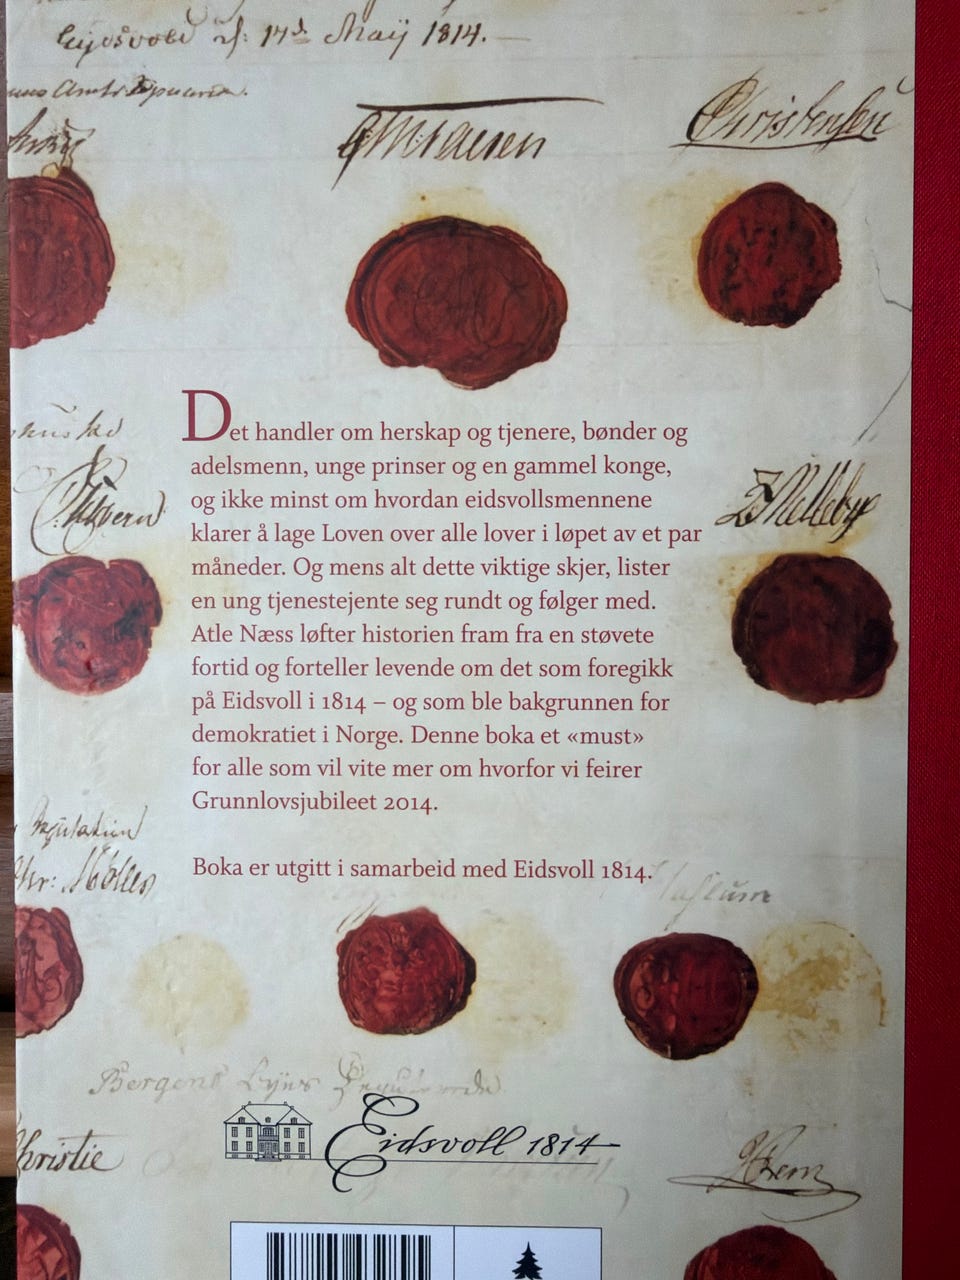 Eidsvold d: 17de Maÿ 1814.
Christensen
Det handler om herskap og tjenere, bønder og
adelsmenn, unge prinser og en gammel konge,
og ikke minst om hvordan eidsvollsmennene
klarer å lage Loven over alle lover i løpet av et par
måneder. Og mens alt dette viktige skjer, lister
en ung tjenestejente seg rundt og følger med.
Atle Næss løfter historien fram fra en støvete
fortid og forteller levende om det som foregikk
på Eidsvoll i 1814 – og som ble bakgrunnen for
demokratiet i Norge. Denne boka et «must»
for alle som vil vite mer om hvorfor vi feirer
Grunnlovsjubileet 2014.
Boka er utgitt i samarbeid med Eidsvoll 1814.
Bergens
Eidsvoll 1814
Christie